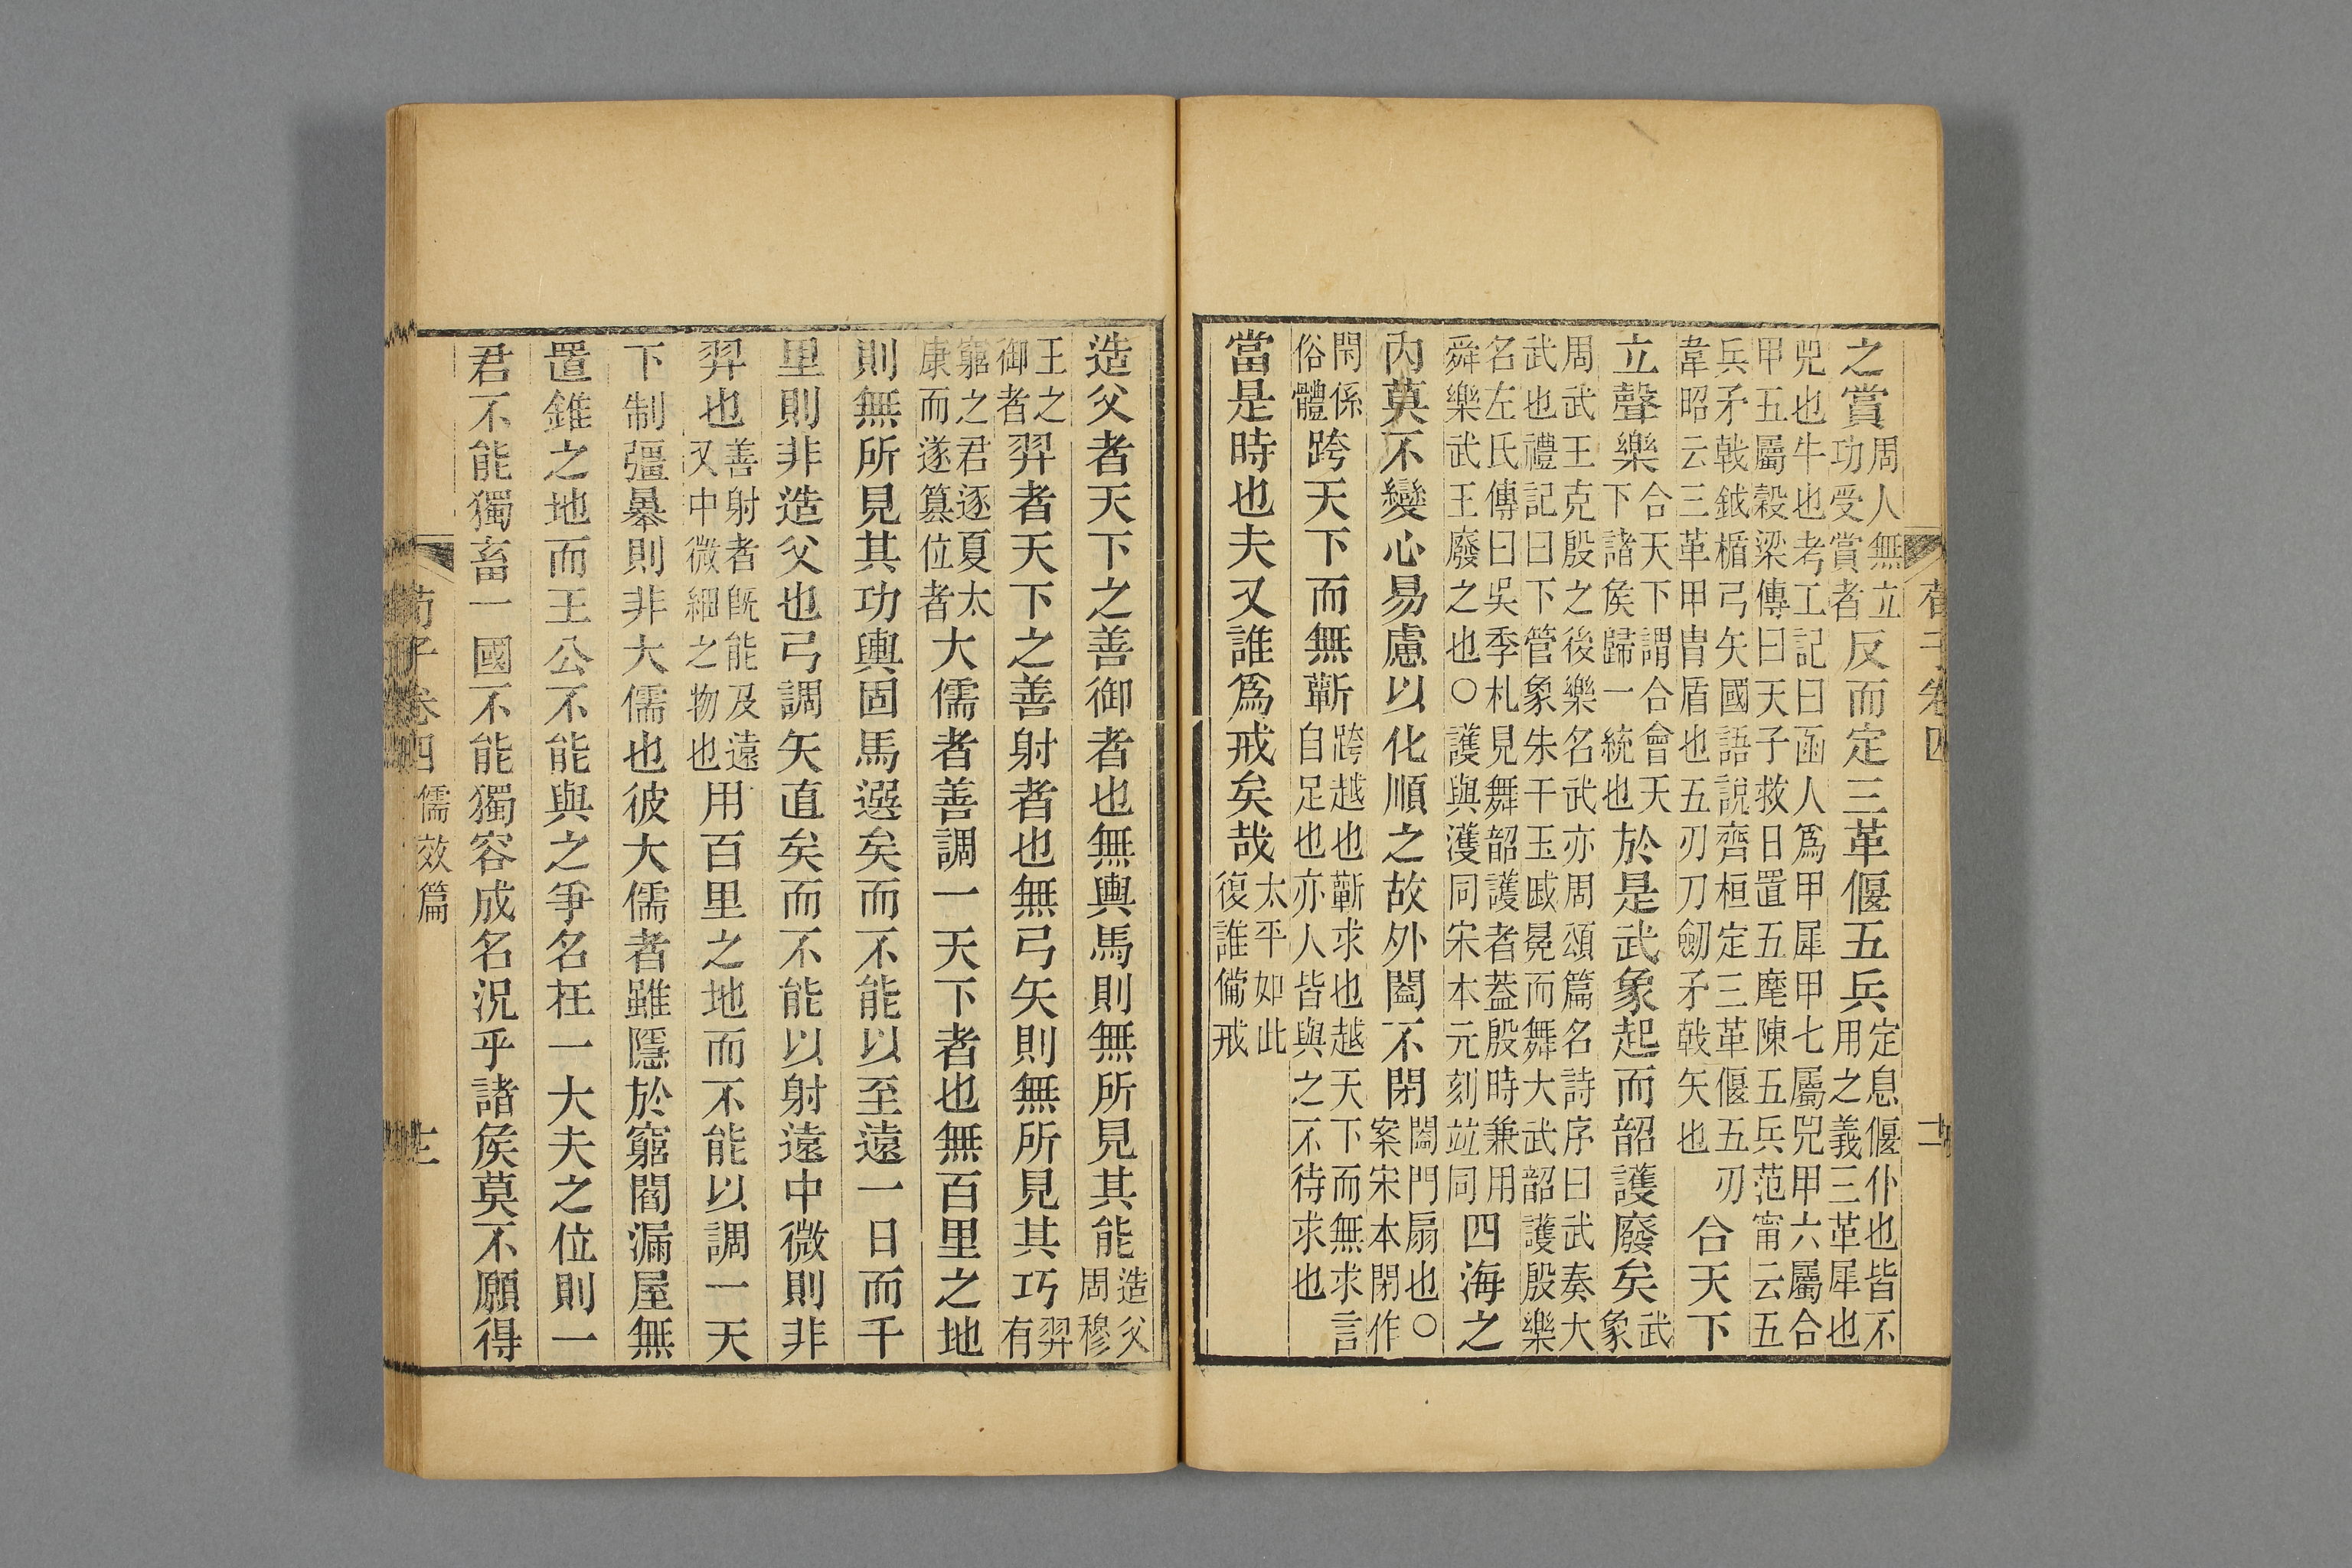 荀子卷四
之賞周人無立功受賞者反而定三革偃五兵定息偃仆也皆不用之義三革犀也
兕也牛也考工記曰函人爲甲犀甲七屬兕甲六屬合
甲五屬穀梁傳曰天子救日置五麾陳五兵范甯云五
兵矛戟鉞楯弓矢國語說齊桓定三革偃五刃
韋昭云三革甲冑盾也五刃刀劒矛戟矢也合天下
立聲樂合天下謂合會天下諸矦歸一統也於是武象起而韶護廢矣武象
周武王克殷之後樂名武亦周頌篇名詩序曰武奏大
武也禮記曰下管象朱干玉戚冕而舞大武韶護殷樂
名左氏傳曰吳季札見舞韶護者葢殷時兼用
舜樂武王廢之也○護與濩同宋本元刻竝同四海之
內莫不變心易慮以化順之故外闔不閉闔門扇也○案宋本閉作
閑係俗體跨天下而無蘄跨越也蘄求也越天下而無求言自足也亦人皆與之不待求也
當是時也夫又誰爲戒矣哉太平如此復誰備戒
造父者天下之善御者也無輿馬則無所見其能造父周穆
王之御者羿者天下之善射者也無弓矢則無所見其巧羿有
竆之君逐夏太康而遂篡位者大儒者善調一天下者也無百里之地
則無所見其功輿固馬選矣而不能以至遠一日而千
里則非造父也弓調矢直矣而不能以射遠中微則非
羿也善射者旣能及遠又中微細之物也用百里之地而不能以調一天
下制彊暴則非大儒也彼大儒者雖隱於窮閻漏屋無
置錐之地而王公不能與之爭名在一大夫之位則一
君不能獨畜一國不能獨容成名況乎諸矦莫不願得
荀子卷四 儒效篇